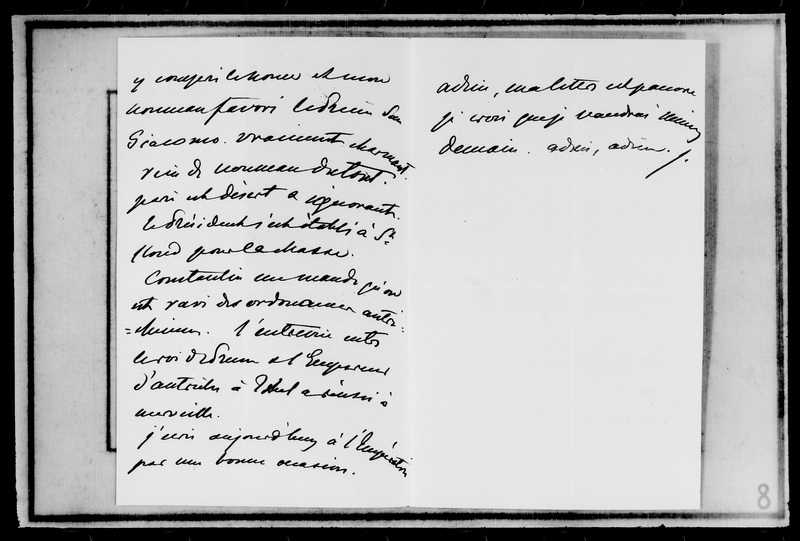 y compris le nonce et mon
nouveau favori le Prince San
Giacomo. vraiment charmant.
rien de nouveau du tout.
paris est désert & ignorant.
le Président s'est établi à St
Cloud pour la chasse.
Constantin me mande qu'on
est ravi des ordonnances autri
=chiennes. l'entrevue entre
le roi de Prusse & l'Empereur
d'autriche à Ischl a réussi à
merveille.
j'écris aujourd'huy à l'Impératrice
par une bonne occasion.
adieu, ma lettre est pauvre
je crois que je vaudrai mieux
demain. adieu, adieu.
8